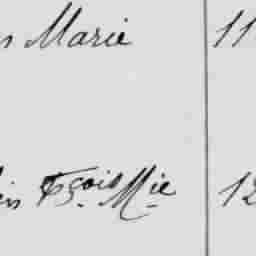 Marie 11
Fçois Mie 12